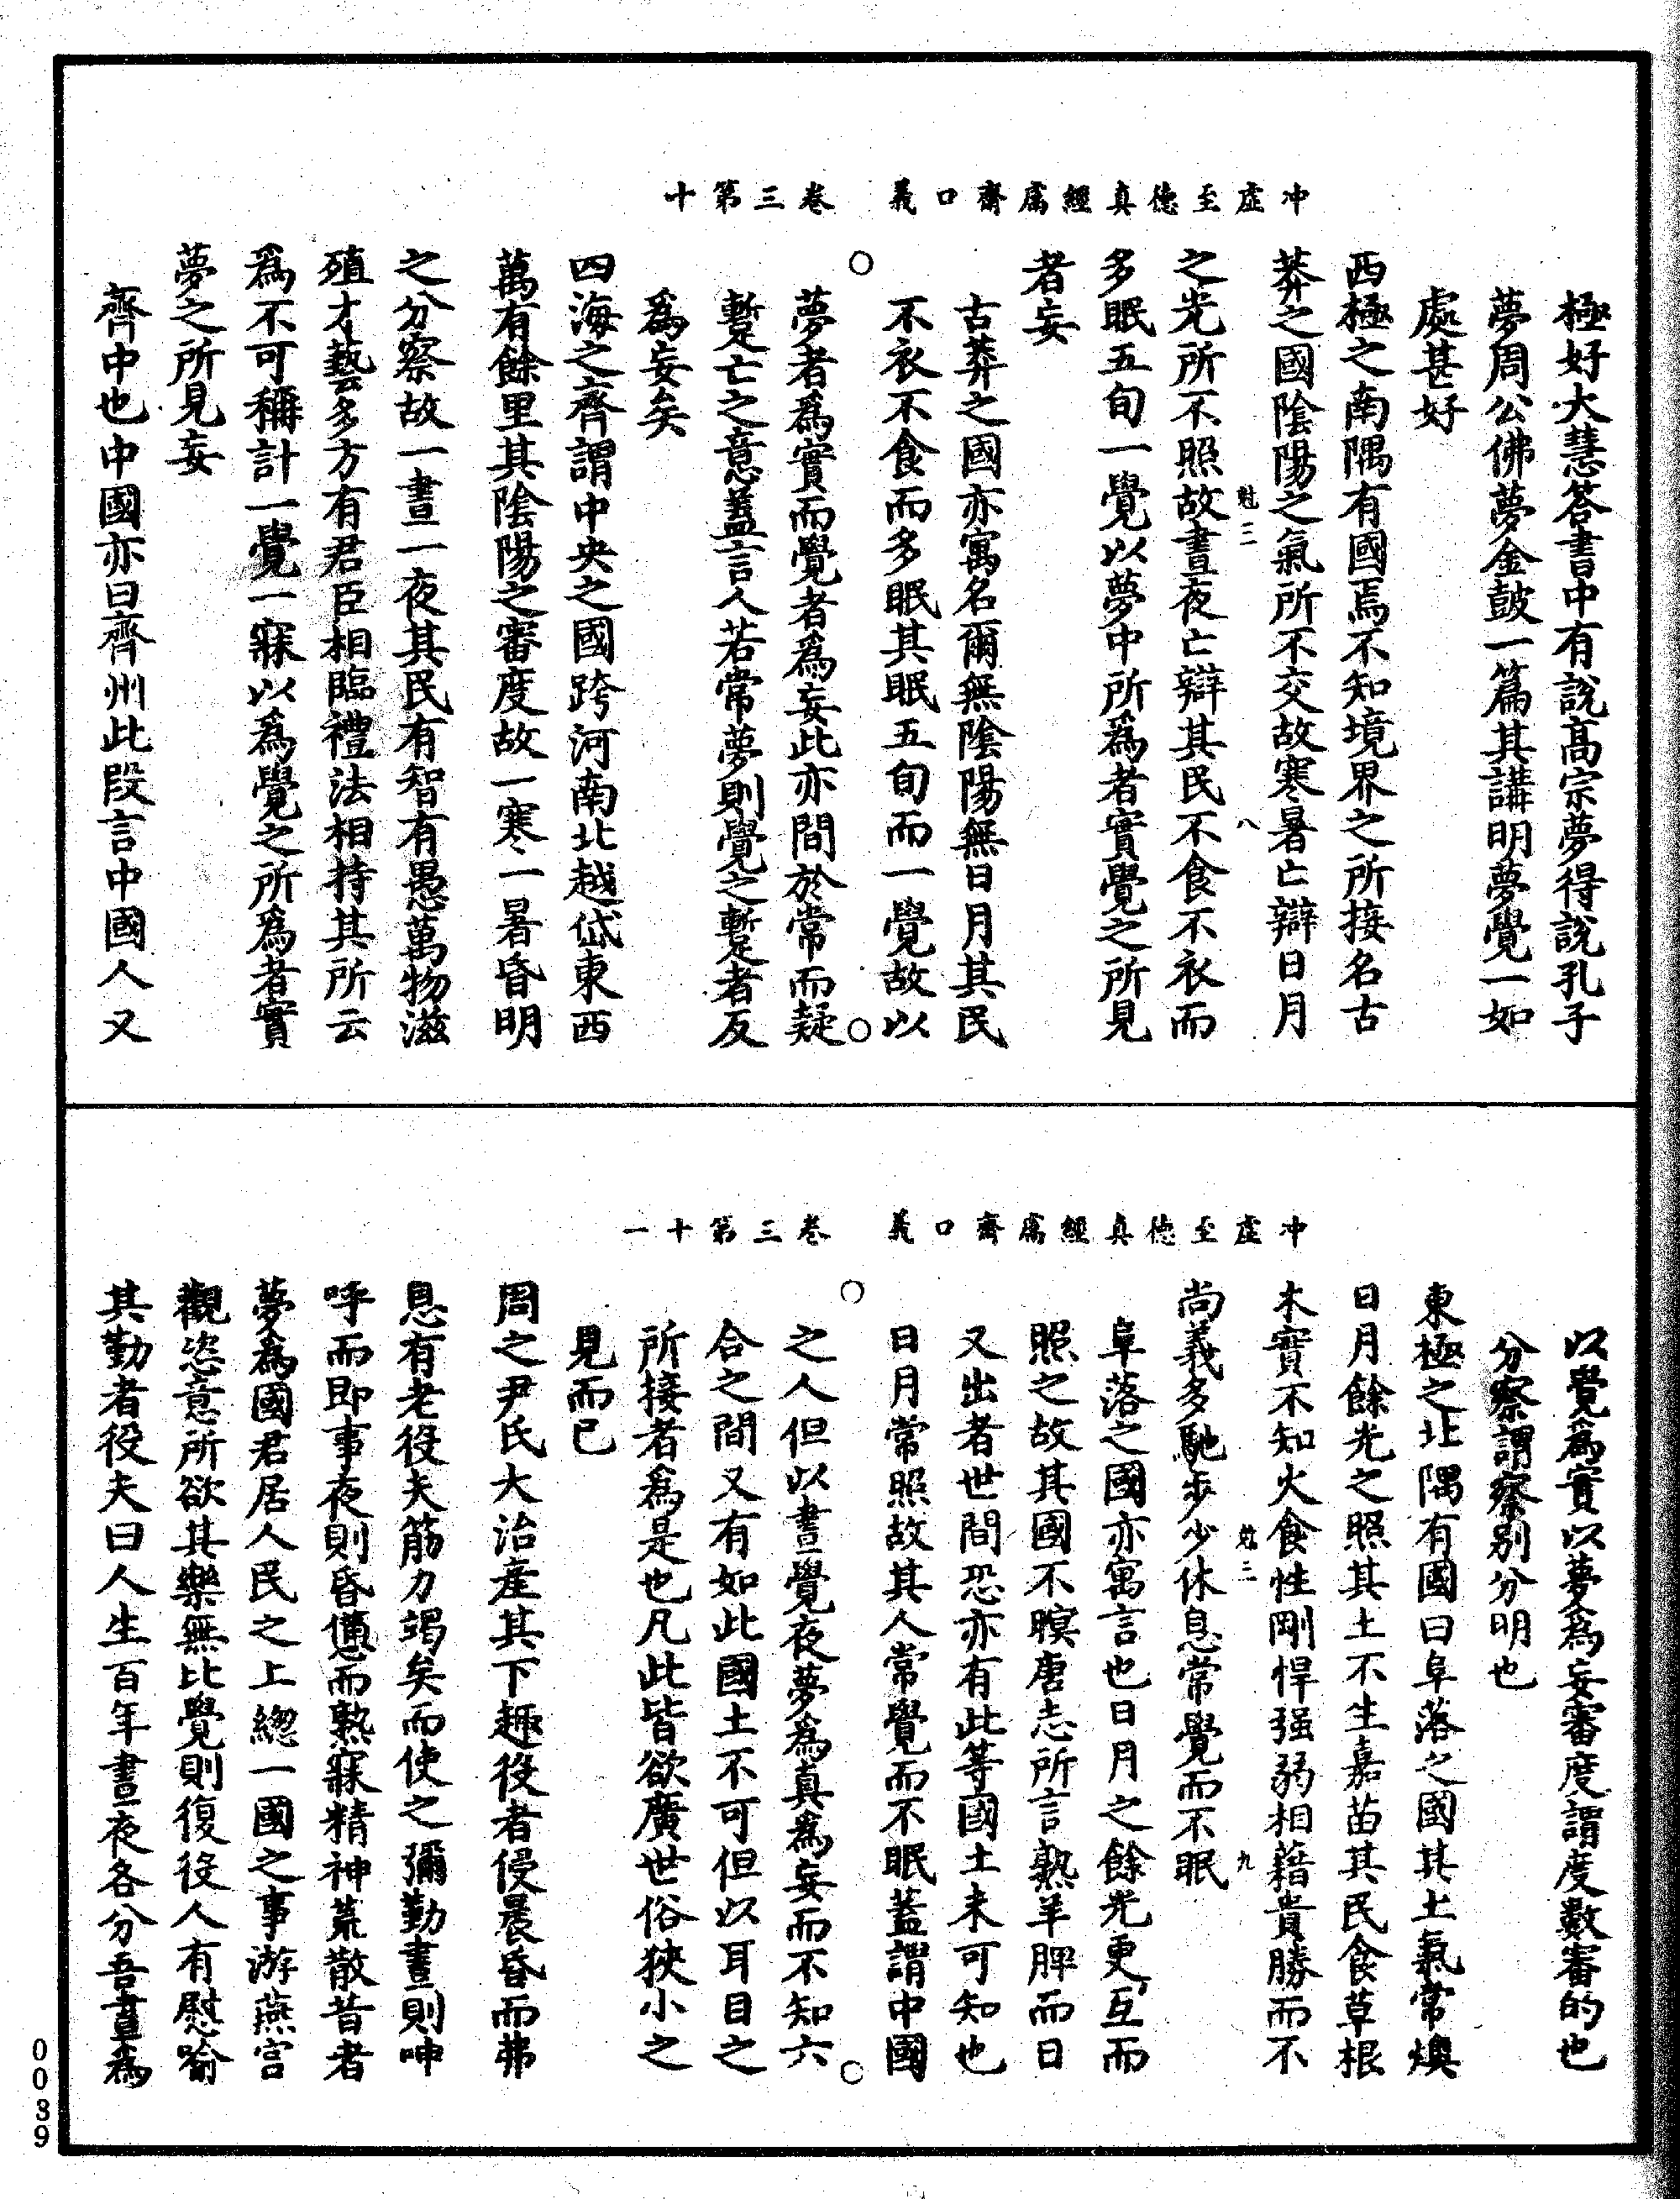 冲虛至德真經鬳齋口義　卷三第十
極好大慧答書中有說髙宗夢得說孔子
夢周公佛夢金鼓一篇其講明夢覺一如
處甚好
西極之南隅有國焉不知境界之所接名古
莽之國陰陽之氣所不交故寒暑亡辯日月
魁三　八
之光所不照故晝夜亡辯其民不食不衣而
多眠五旬一覺以夢中所爲者實覺之所見
者妄
古莽之國亦寓名爾無陰陽無日月其民
不衣不食而多眠其眠五旬而一覺故以
夢者爲實而覺者爲妄此亦間於常而疑
蹔亡之意蓋言人若常夢則覺之蹔者反
爲妄矣
四海之齊謂中央之國跨河南北越岱東西
萬有餘里其陰陽之審度故一寒一暑昏明
之分察故一晝一夜其民有智有愚萬物滋
殖才藝多方有君臣相臨禮法相持其所云
爲不可稱計一覺一寐以爲覺之所爲者實
夢之所見妄
齊中也中國亦曰齊州此段言中國人又
冲虛至德真經鬳齋口義　卷三第十一
以覺爲實以夢爲妄審度謂度數審的也
分察謂察别分明也
東極之北隅有國曰阜落之國其土氣常燠
日月餘光之照其土不生嘉苗其民食草根
木實不知火食性剛悍强弱相藉貴勝而不
魁三　九
尚義多馳步少休息常覺而不眠
阜落之國亦寓言也日月之餘光更互而
照之故其國不暝唐志所言熟羊胛而日
又出者世間恐亦有此等國土未可知也
日月常照故其人常覺而不眠蓋謂中國
之人但以晝覺夜夢為真爲妄而不知六
合之間又有如此國土不可但以耳目之
所接者爲是也凡此皆欲廣世俗狹小之
見而已
周之尹氏大治產其下趣役者侵晨昏而弗
息有老役夫筋力竭矣而使之彌勤晝則呻
呼而即事夜則昏憊而熟寐精神荒散昔者
夢為國君居人民之上緫一國之事游燕宫
觀恣意所欲其樂無比覺則復役人有慰喻
其勤者役夫曰人生百年晝夜各分吾晝爲
0039